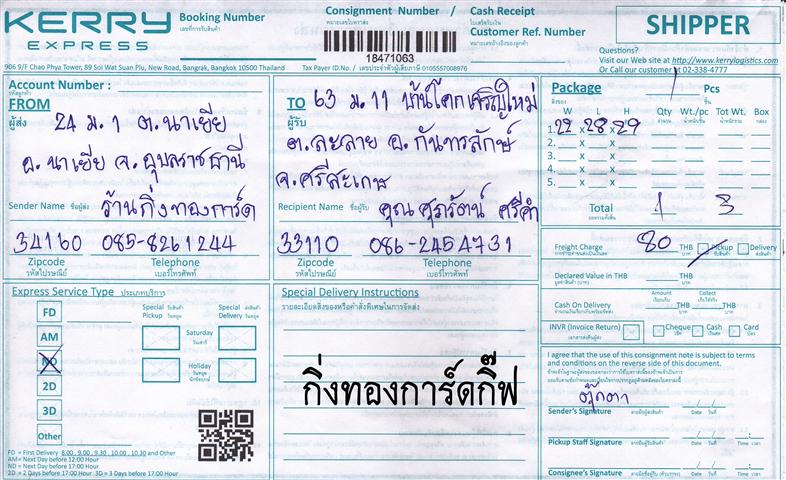 KERRY
EXPRESS
Booking Number
เลขที่การรับสินค้า
Consignment Number / Cash Receipt
หมายเลขใบตราส่ง ใบเสร็จรับเงิน
18471063
Customer Ref. Number
หมายเลขอ้างอิงของลูกค้า
SHIPPER
Questions?
Visit our Web site at http://www.kerrylogistics.com
Or Call our customer at 02-338-4777
906 9/F Chao Phya Tower, 89 Soi Wat Suan Plu, New Road, Bangrak, Bangkok 10500 Thailand
Tax Payer ID.No. / เลขประจำตัวผู้เสียภาษี 0105557008976
Account Number :
รหัสลูกค้า
FROM
ผู้ส่ง
24 ม. 1 ต.นาเยีย
อ.นาเยีย จ.อุบลราชธานี
Sender Name ชื่อผู้ส่ง ร้านกิ่งทองการ์ด
34160 085-8261244
Zipcode Telephone
รหัสไปรษณีย์ เบอร์โทรศัพท์
TO
ผู้รับ
63 ม.11 บ้านโคกเจริญใหม่
ต.ละลาย อ.กันทรลักษ์
จ.ศรีสะเกษ
Recipient Name ชื่อผู้รับ คุณ ศุภรัตน์ ศรีคำ
33110 086-2454731
Zipcode Telephone
รหัสไปรษณีย์ เบอร์โทรศัพท์
Package 1 Pcs
สิ่งของ ชิ้น
W L H Qty Wt./pc Tot Wt. Box
จำนวน น้ำหนัก/ชิ้น น้ำหนักรวม กล่อง
1. 22 x 28 x 29
2. x x
3. x x
4. x x
5. x x
Total 1 3
Freight Charge 80 THB Pickup Delivery
บาท รับสินค้า ส่งสินค้า
Declared Value in THB THB
บาท
Amount Collect
Cash On Delivery THB THB
บาท บาท
INVR (Invoice Return) Cheque Cash Card
เช็ค เงินสด บัตร
Express Service Type ประเภทบริการ
FD
AM
ND
2D
3D
Other
Special Pickup รับสินค้า วันหยุด
Special Delivery ส่งสินค้า วันหยุด
Saturday
วันเสาร์
Holiday
วันหยุด
นักขัตฤกษ์
FD = First Delivery 8.00 , 9.00 , 9.30 , 10.00 , 10.30 and Other
AM = Next Day before 12:00 Hour
ND = Next Day before 17:00 Hour
2D = 2 Days before 17:00 Hour 3D = 3 Days before 17:00 Hour
Special Delivery Instructions
รายละเอียดสิ่งของหรือคำสั่งพิเศษในการจัดส่ง
กิ่งทองการ์ดกิ๊ฟ
I agree that the use of this consignment note is subject to terms
and conditions on the reverse side of this document.
ตุ๊กตา
Sender's Signature ลายมือชื่อผู้ส่งสินค้า Date วันที่
Pickup Staff Signature Date วันที่ Time เวลา
Consignee's Signature Date วันที่ Time เวลา